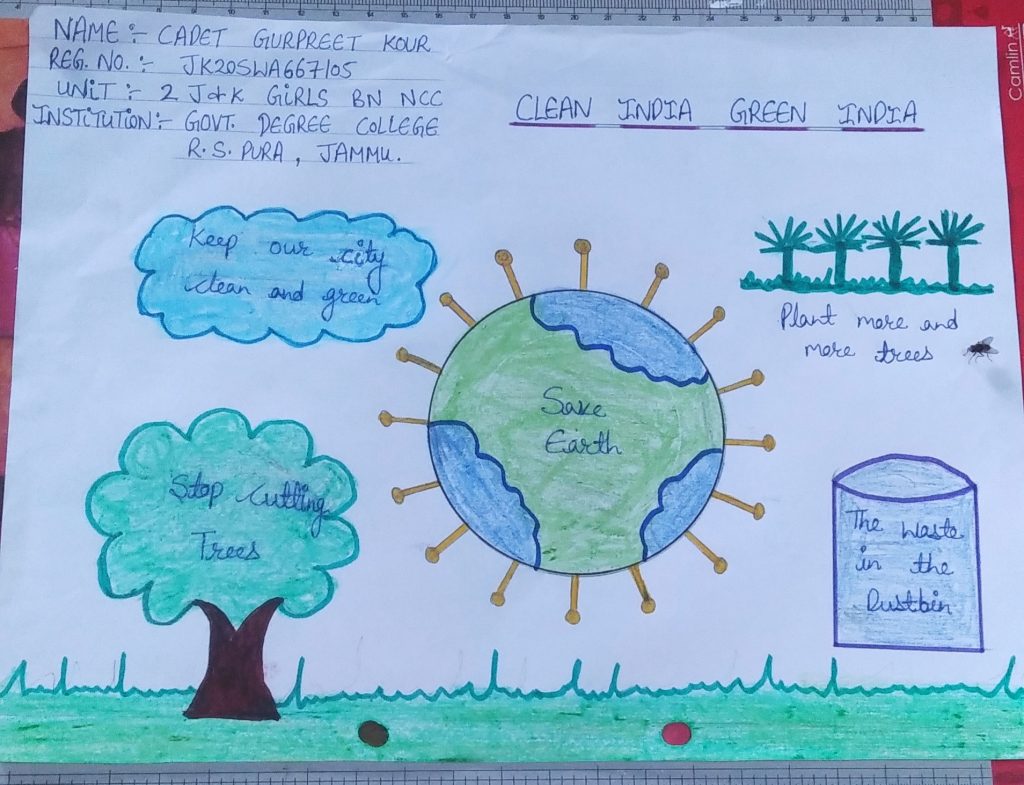 NAME :- CADET GURPREET KOUR
REG. NO. :- JK20SWA667105
UNIT :- 2 J&K GIRLS BN NCC
INSTITUTION :- GOVT. DEGREE COLLEGE
R.S. PURA, JAMMU.
CLEAN INDIA GREEN INDIA
Keep our city
clean and green
Plant more and
more trees
Save
Earth
Stop cutting
Trees
The waste
in the
Dustbin
Camlin